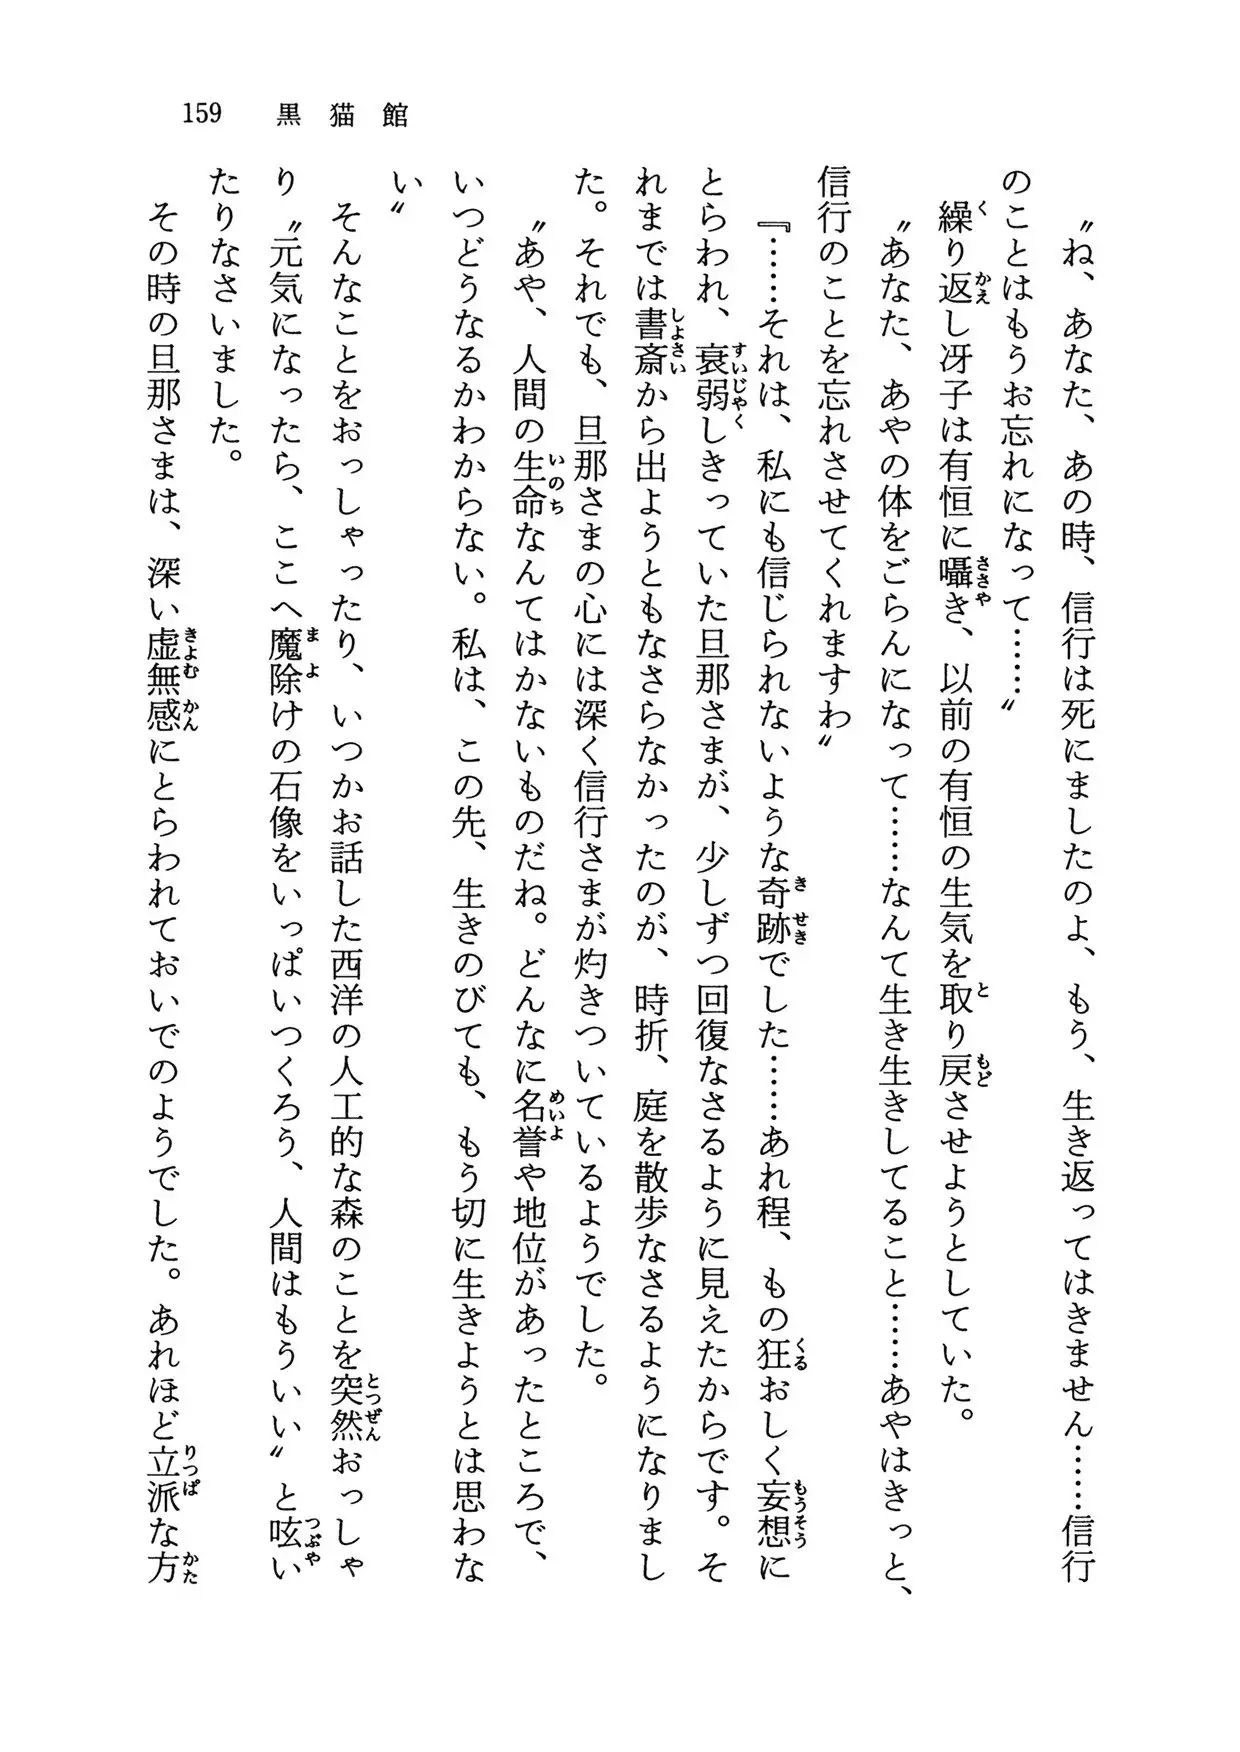 159 黒猫館
〝ね、あなた、あの時、信行は死にましたのよ、もう、生き返ってはきません……信行
のことはもうお忘れになって……〟
繰り返し冴子は有恒に囁き、以前の有恒の生気を取り戻させようとしていた。
〝あなた、あやの体をごらんになって……なんて生き生きしてること……あやはきっと、
信行のことを忘れさせてくれますわ〟
『……それは、私にも信じられないような奇跡でした……あれ程、もの狂おしく妄想に
とらわれ、衰弱しきっていた旦那さまが、少しずつ回復なさるように見えたからです。そ
れまでは書斎から出ようともなさらなかったのが、時折、庭を散歩なさるようになりまし
た。それでも、旦那さまの心には深く信行さまが灼きついているようでした。
〝あや、人間の生命なんてはかないものだね。どんなに名誉や地位があったところで、
いつどうなるかわからない。私は、この先、生きのびても、もう切に生きようとは思わな
い〟
そんなことをおっしゃったり、いつかお話した西洋の人工的な森のことを突然おっしゃ
り〝元気になったら、ここへ魔除けの石像をいっぱいつくろう、人間はもういい〟と呟い
たりなさいました。
その時の旦那さまは、深い虚無感にとらわれておいでのようでした。あれほど立派な方